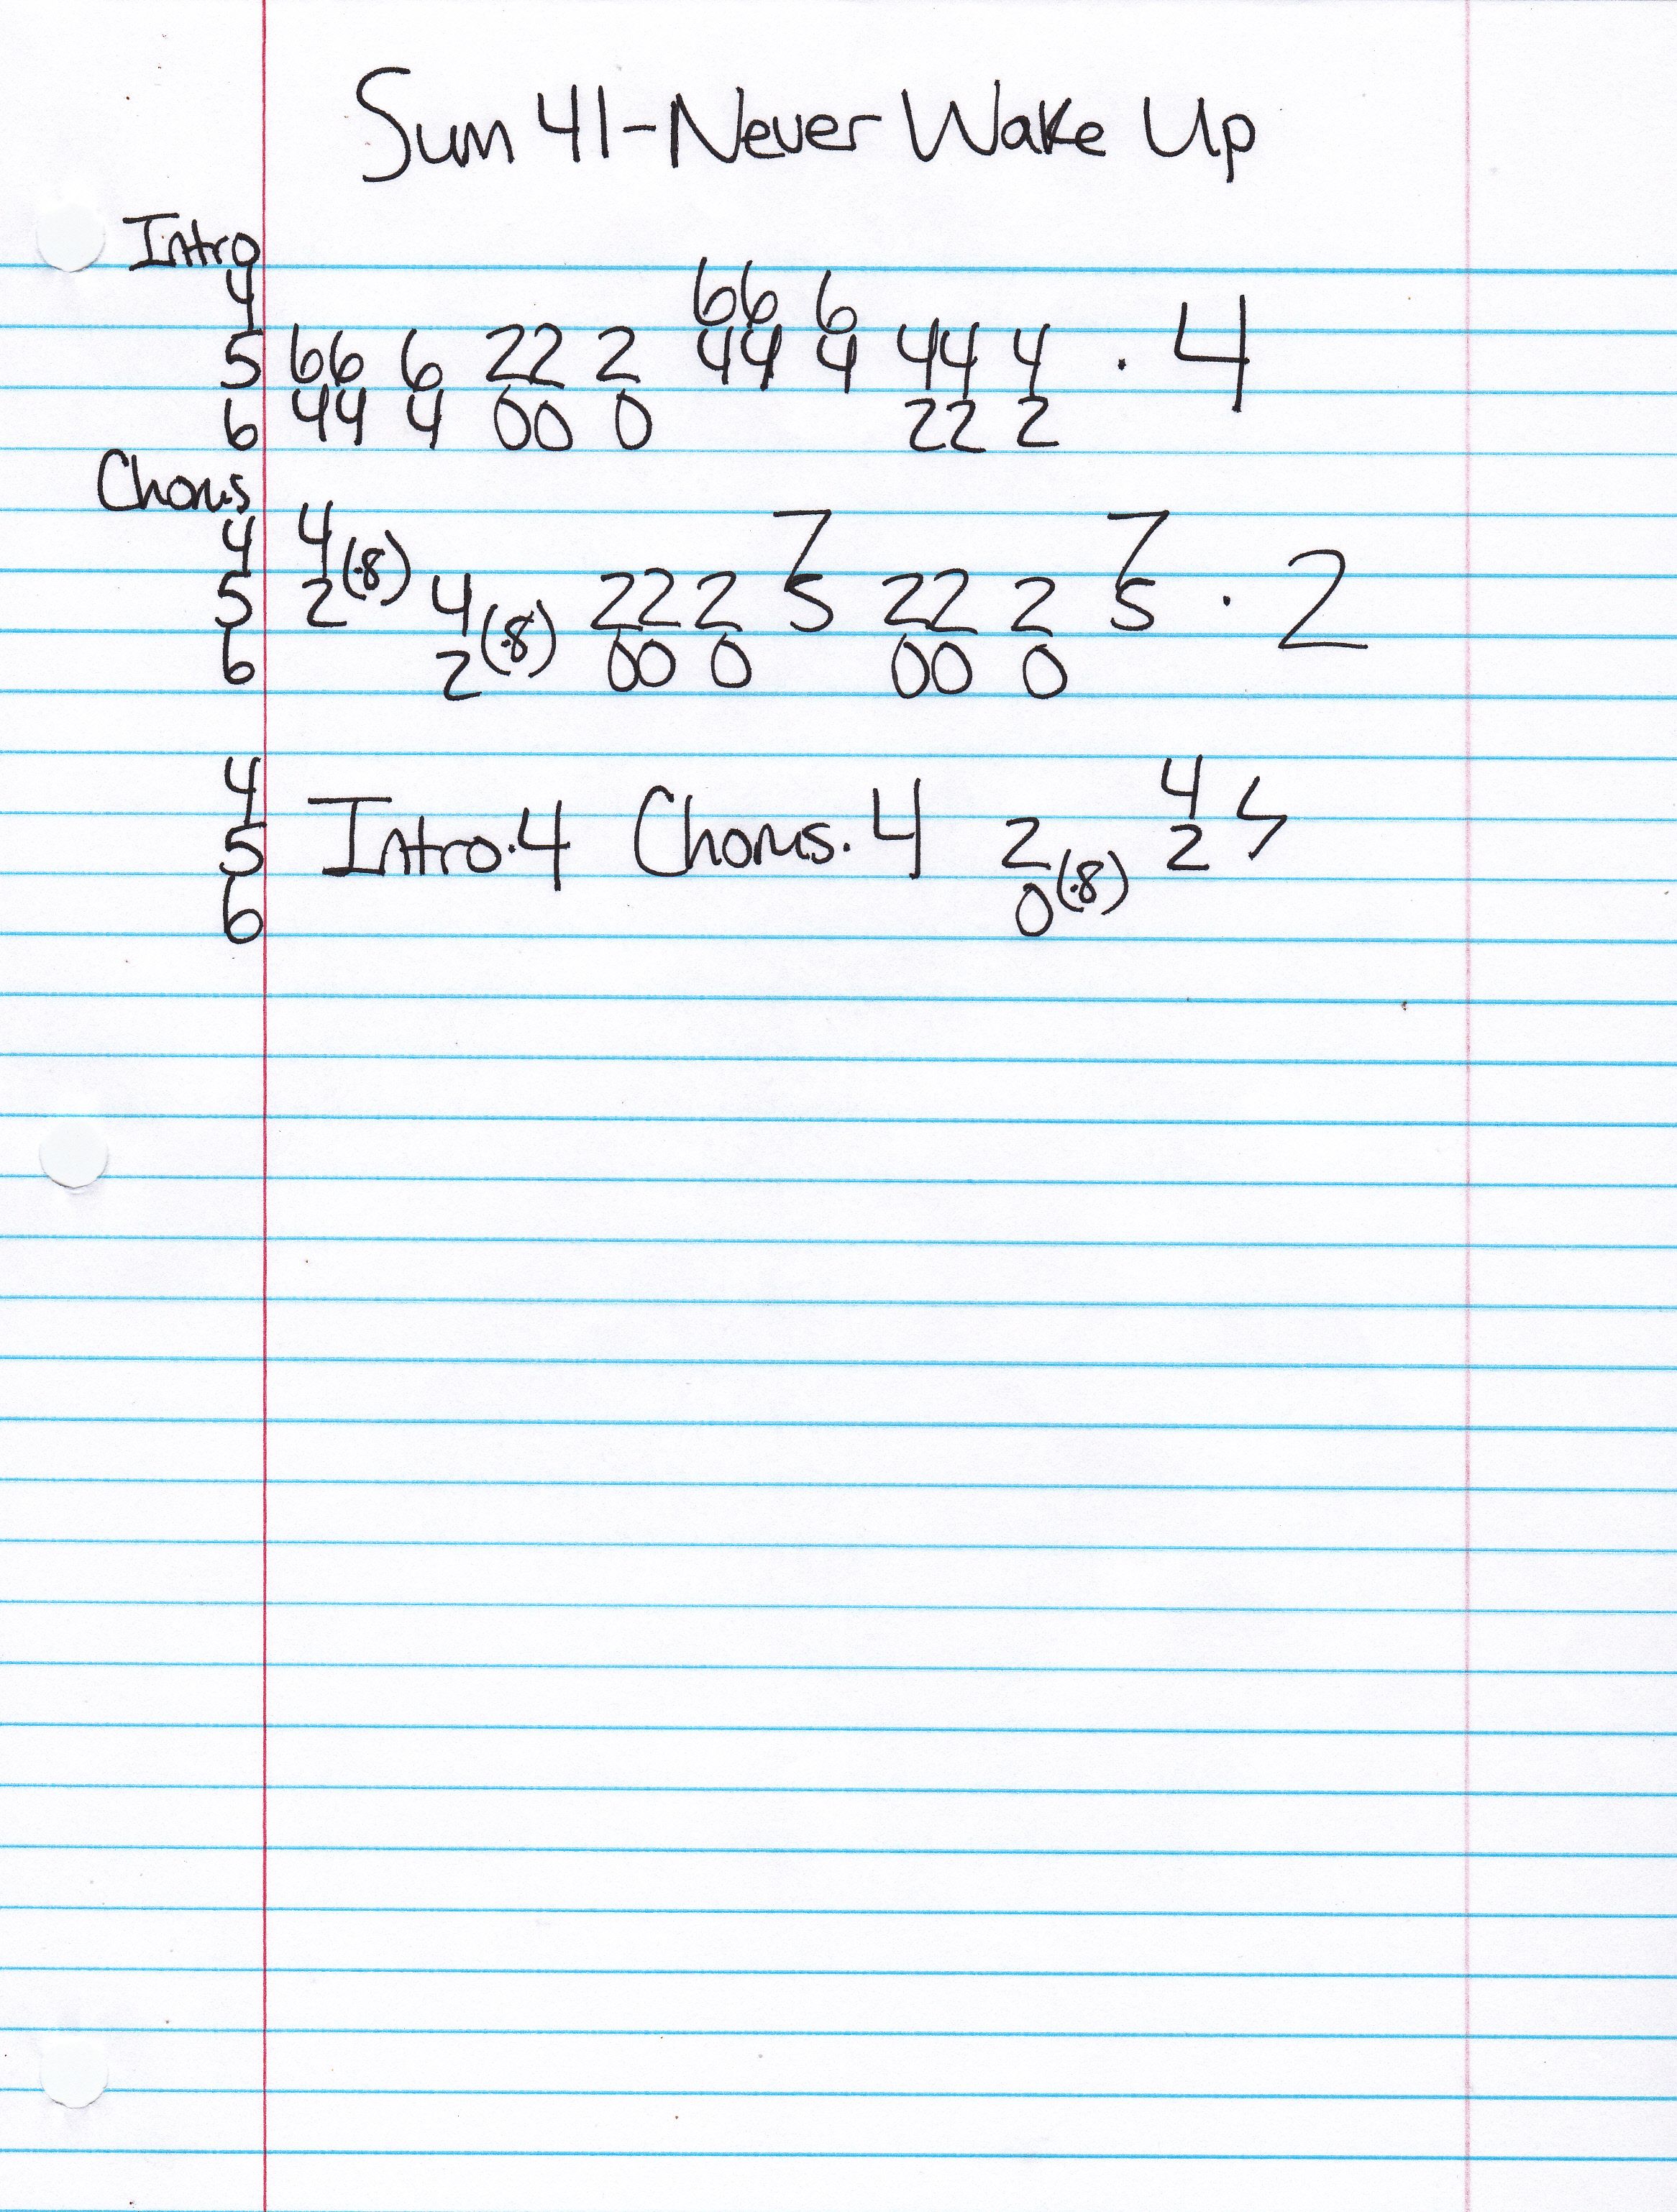 Sum 41-Never Wake Up
Intro
4 66 6
5 66 6 22 2 44 4 44 4 · 4
6 44 4 00 0 22 2
Chorus
4 4(·8) 7 7
5 2 4(·8) 22 2 5 22 2 5 · 2
6 2 00 0 00 0
4 4
5 Intro·4 Chorus·4 2(·8) 2
6 0